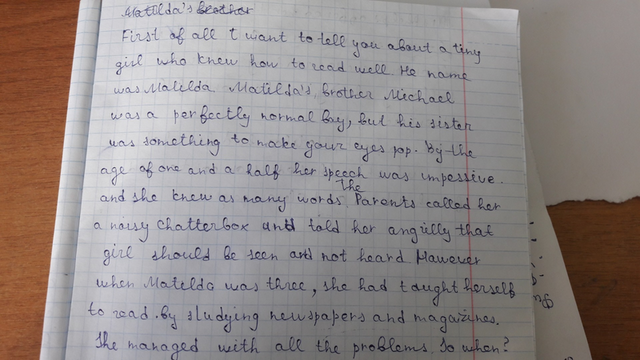 Matilda's brother
First of all I want to tell you about a tiny
girl who knew how to read well. He name
was Matilda. Matilda's brother Michael
was a perfectly normal boy, but his sister
was something to make your eyes pop. By the
age of one and a half her speech was impessive.
and she knew as many words. The Parents called her
a noisy chatterbox and told her angrilly that
girl should be seen and not heard However
when Matilda was three, she had taught herself
to read by studying newspapers and magazines.
She managed with all the problems. So when?